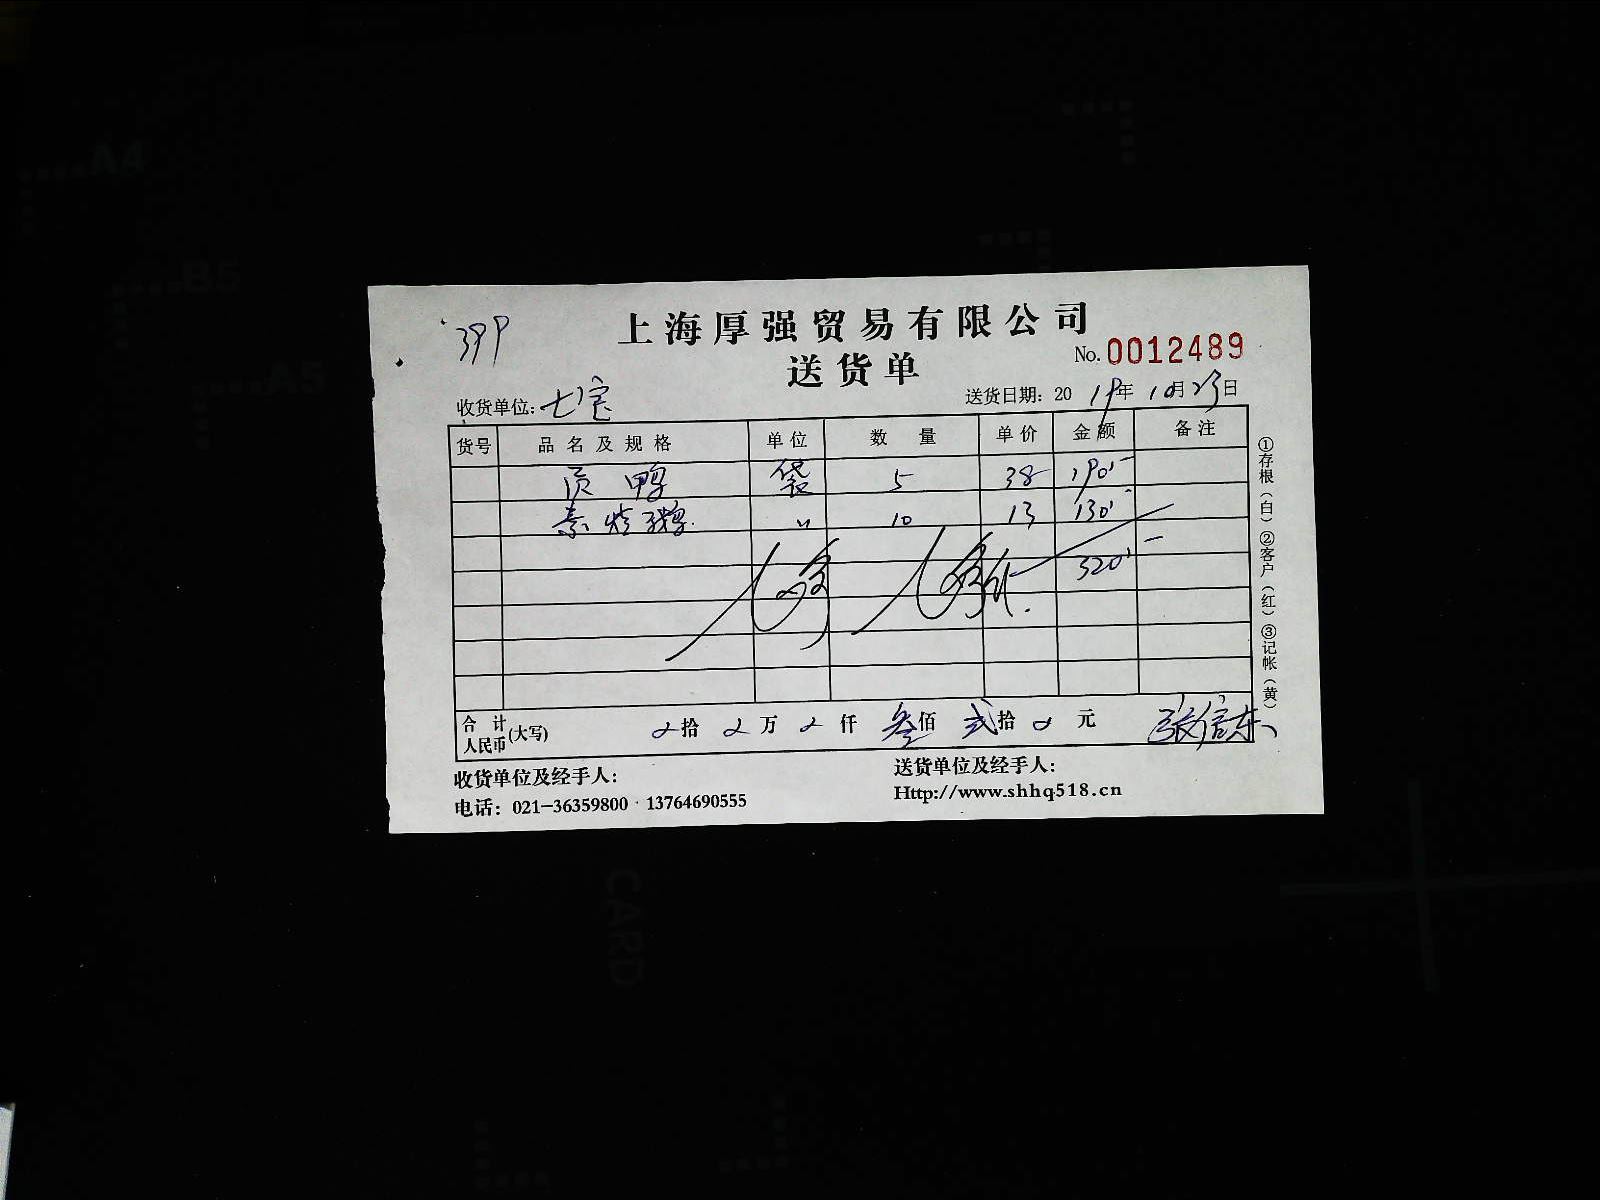 399
上海厚强贸易有限公司
送货单
No. 0012489
收货单位: 七宝
送货日期: 2019年10月23日
货号 品名及规格 单位 数量 单价 金额 备注
鸭 袋 5 38 190-
素烧鹅 〃 10 13 130-
320-
合计人民币(大写) 拾 万 仟 叁佰 贰拾 元 张信东
收货单位及经手人:
送货单位及经手人:
电话: 021-36359800 13764690555
Http://www.shhq518.cn
①存根(白)②客户(红)③记帐(黄)
A4
B5
A5
CARD